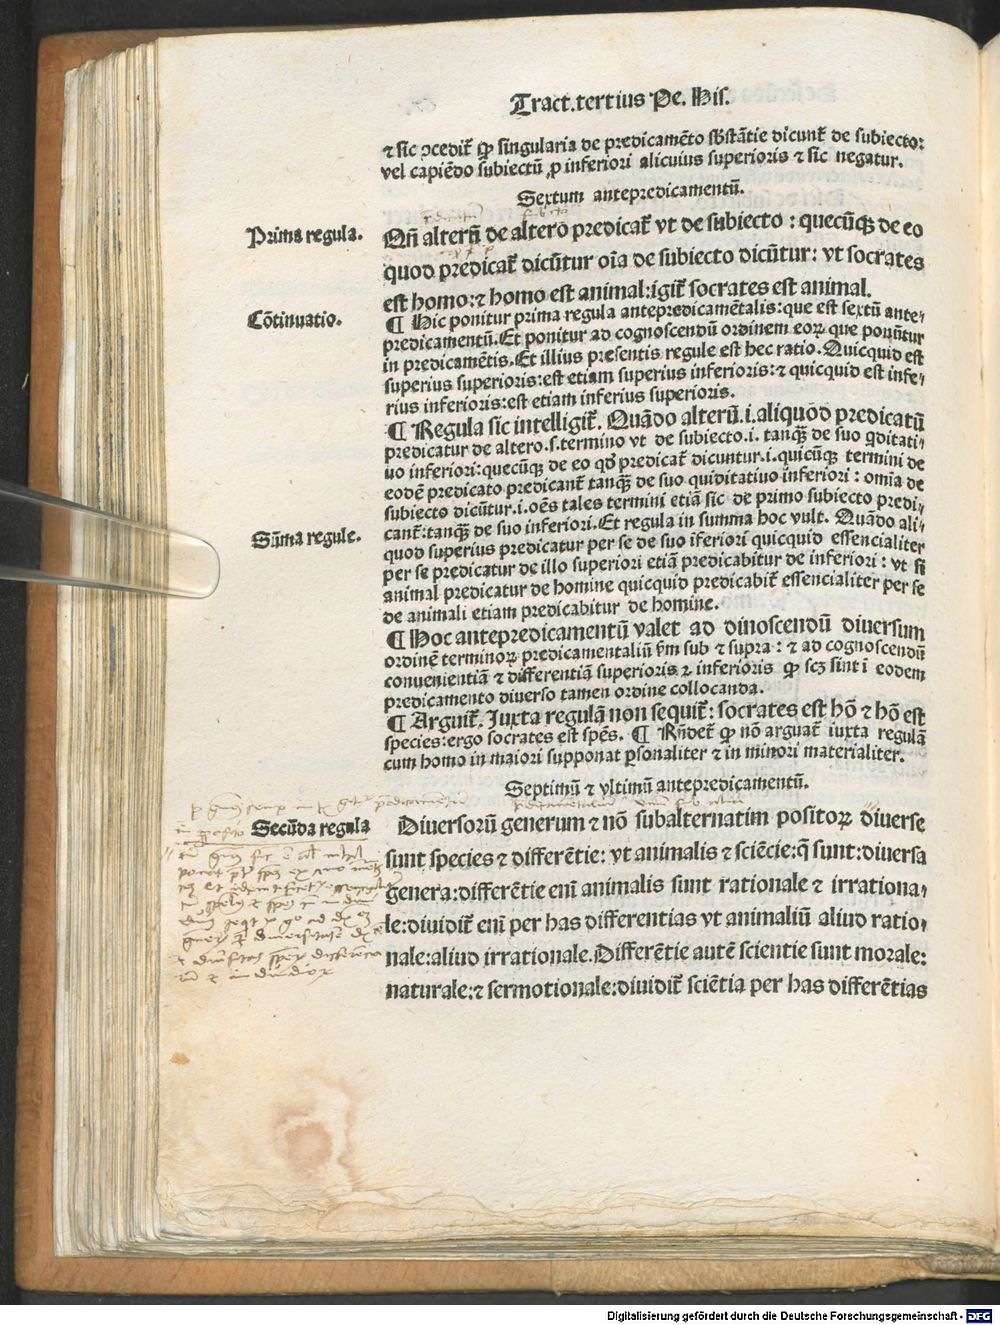 Tract. tertius Pe. His.
⁊ sic ꝯcedit̃ ꝙ singularia de predicamẽto sb̃stãtie dicunt̃ de subiecto:
vel capiẽdo subiectũ ꝓ inferiori alicuius superioris ⁊ sic negatur.
Sextum antepredicamentũ.
Prima regula.
Qñ alterũ de altero predicat̃ vt de subiecto : quecũqꝫ de eo
quod predicat̃ dicũtur oĩa de subiecto dicũtur: vt socrates
est homo:⁊ homo est animal:igit̃ socrates est animal.
Cõtinuatio.
¶ Hic ponitur prima regula antepredicamẽtalis:que est sextũ ante⸗
predicamentũ.Et ponitur ad cognoscendũ ordinem eoꝝ que ponũtur
in predicamẽtis.Et illius presentis regule est hec ratio.Quicquid est
superius superioris:est etiam superius inferioris:⁊ quicquid est infe⸗
rius inferioris:est etiam inferius superioris.
¶ Regula sic intelligit̃. Quãdo alterũ.i.aliquod predicatũ
predicatur de altero.s.termino vt de subiecto.i. tanqꝫ̃ de suo qditati⸗
uo inferiori:quecũqꝫ de eo qd̃ predicat̃ dicuntur.i.quicũqꝫ termini de
eodẽ predicato predicant̃ tanqꝫ̃ de suo quiditatiuo inferiori : omia de
subiecto dicũtur.i.oẽs tales termini etiã sic de primo subiecto predi⸗
cant̃:tanqꝫ̃ de suo inferiori.Et regula in summa hoc vult. Quãdo ali⸗
Sũma regule.
quod superius predicatur per se de suo iferiori quicquid essencialiter
per se predicatur de illo superiori etiã predicabitur de inferiori : vt si
animal predicatur de homine quicquid predicabit̃ essencialiter per se
de animali etiam predicabitur de homine.
¶ Hoc antepredicamentũ valet ad dinoscendũ diuersum
ordinẽ terminoꝝ predicamentaliũ ẽm sub ⁊ supra : ⁊ ad cognoscendũ
conuenientiã ⁊ differentiã superioris ⁊ inferioris ꝙ scꝫ sint ĩ eodem
predicamento diuerso tamen ordine collocanda.
¶ Arguit̃. Juxta regulã non sequit̃: socrates est hõ ⁊ hõ est
species:ergo socrates est spẽs. ¶ Rñdet̃ ꝙ nõ arguat̃ iuxta regulã
cum homo in maiori supponat ꝑsonaliter ⁊ in minori materialiter.
Septimũ ⁊ vltimũ antepredicamentũ.
Secũda regula
Diuersorũ generum ⁊ nõ subalternatim positoꝝ diuerse
sunt species ⁊ differẽtie: vt animalis ⁊ sciẽcie:q̃ sunt:diuersa
genera:differẽtie eni animalis sunt rationale ⁊ irrationa⸗
le:diuidit̃ eni per has differentias vt animaliũ aliud ratio⸗
nale:aliud irrationale.Differẽtie autẽ scientie sunt morale:
naturale:⁊ sermotionale:diuidit̃ sciẽtia per has differẽtias
Digitalisierung gefördert durch die Deutsche Forschungsgemeinschaft - DFG